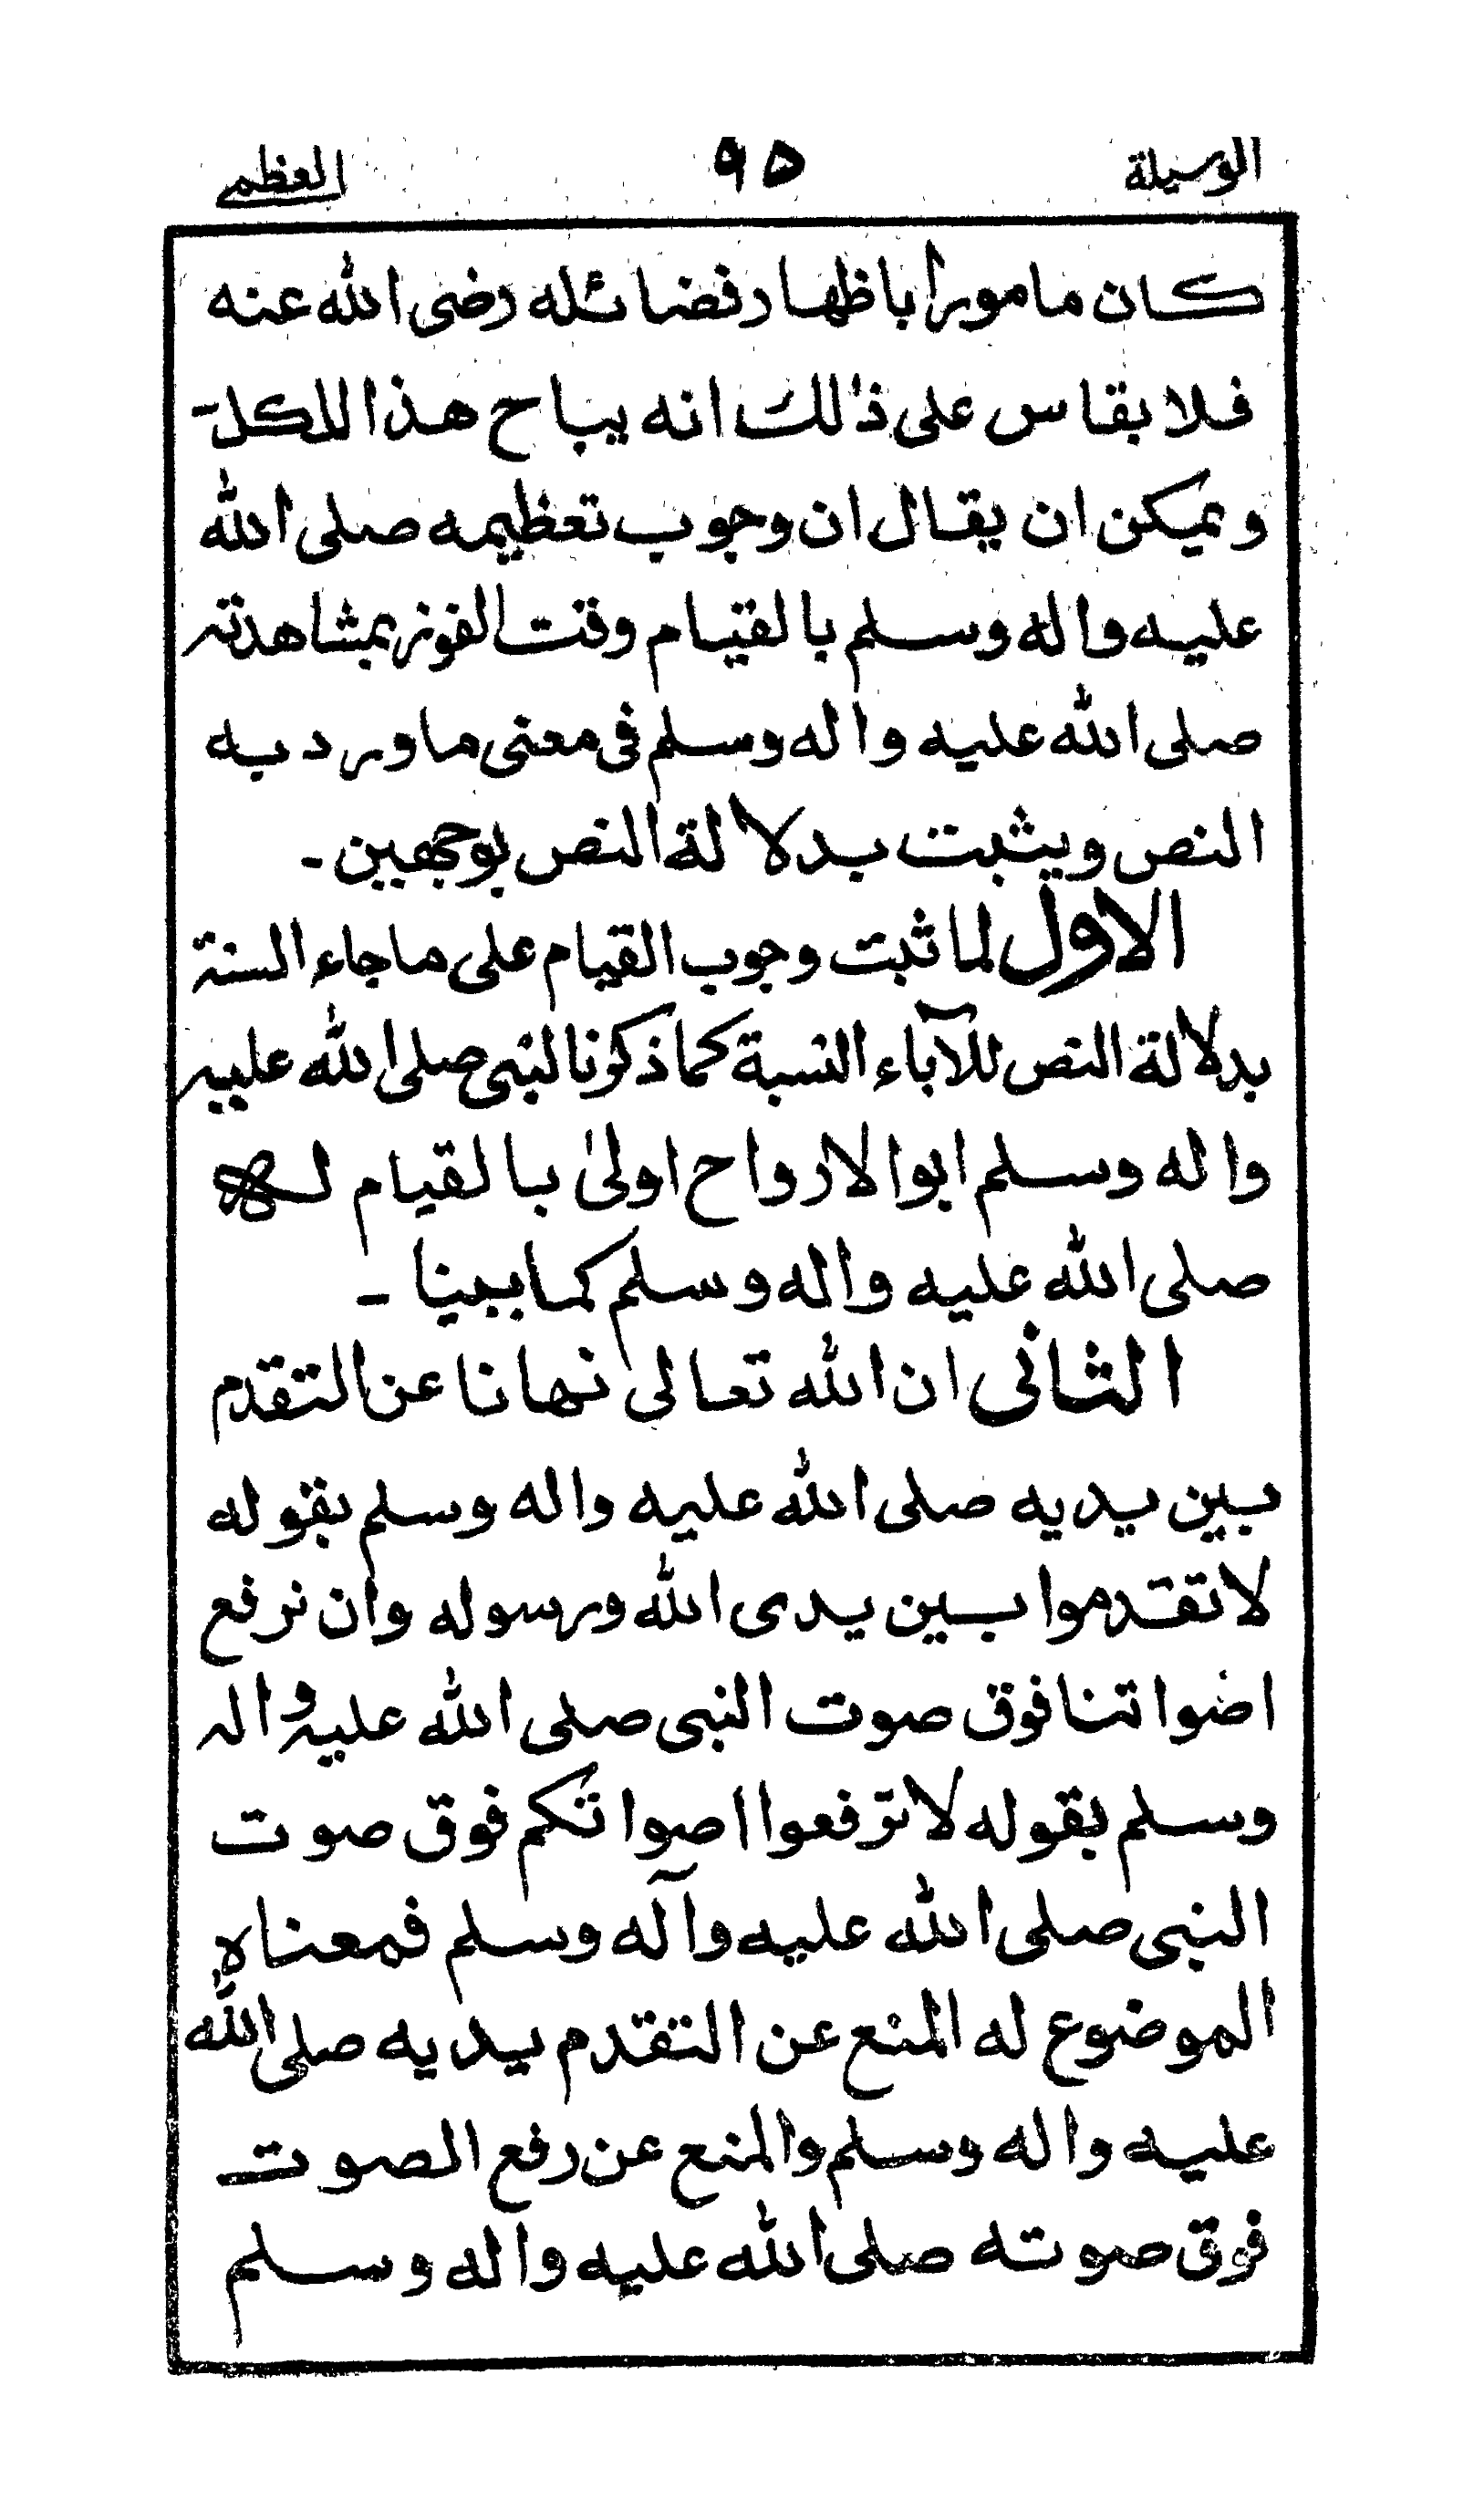 الوسيلة ٩٥ العظمى
كان ما مورا باظهار فضائله رضى الله عنه
فلا يقاس على ذلك انه يباح هذا للكل-
و يمكن ان يقال ان وجوب تعظيمه صلى الله
عليه واله وسلم بالقيام وقت الفوز بمشاهدته
صلى الله عليه واله وسلم فى معنى ما ورد به
النص ويثبت بدلالة النص بوجهين-
الاول لما ثبت وجوب القيام على ما جاء السنة
بدلالة النص للآباء النسبة كما ذكرنا لنبى صلى الله عليه
واله وسلم ابوالارواح اولى بالقيام له
صلى الله عليه واله وسلم كما بينا-
الثانى ان الله تعالى نهانا عن التقدم
بين يديه صلى الله عليه واله وسلم بقوله
لا تقدموا بين يدى الله ورسوله وان نرفع
اضواتنا فوق صوت النبى صلى الله عليه واله
وسلم بقوله لا ترفعوا اصواتكم فوق صوت
النبى صلى الله عليه وآله وسلم فمعناه
الموضوع له المنع عن التقدم يديه صلى الله
عليه واله وسلم والمنع عن رفع الصوت
فوق صوته صلى الله عليه واله وسلم